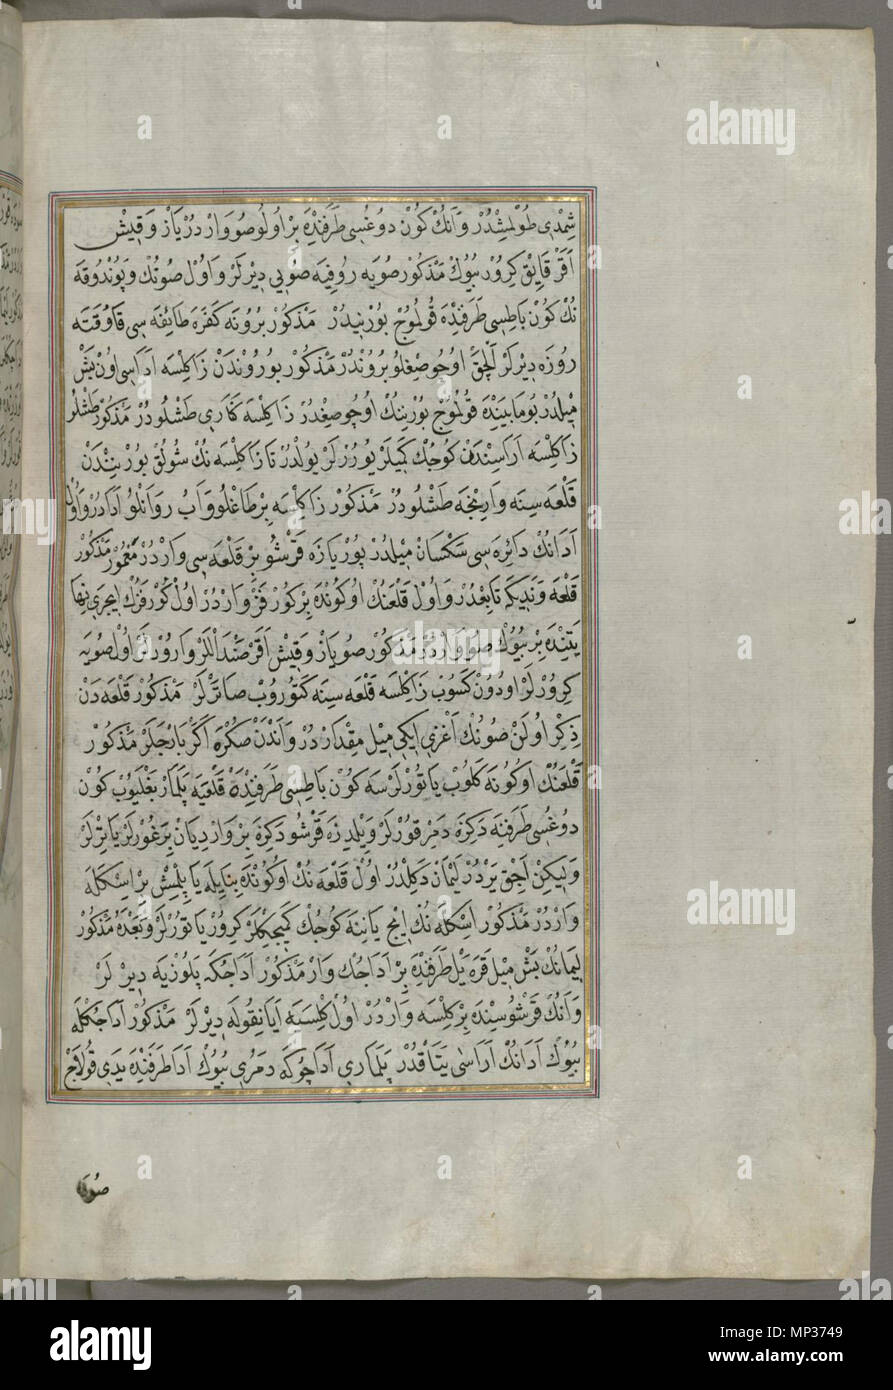 شِمْدِي طُولْمِشْدُرْ وَآنِكْ كُونْ دُوغُسِي طَرَفِنْدَه بِرْ اُولُو صُو وَارْدُرْ يَازْ وَقِيشْ
آقَرْ قَايِقْ كِرُورْ بُيُوكْ مَذْكُورْ صُويَه رُوفِيَه صُويِي دِيرْلَرْ وَاُولْ صُونُكْ وَبُونْدُوقَه
نُكْ كُونْ بَاطِسِي طَرَفِنْدَه قُولُمُوجْ بُورْنِيدُرْ مَذْكُورْ بُرُونَه كَفَرَه طَائِفَه سِي قَاوُقَتَه
رُوزَه دِيرْلَرْ اَلْچَقْ اُوجُو صِغْلُو بُرُونْدُرْ مَذْكُورْ بُورُونْدَنْ زَاكِلِسَه آدَاسِي اُونْ بَشْ
مِيلْدُرْ بُو مَابَيْنِدَه قُولُمُوجْ بُورْنِينُكْ اُوجُو صِغْدُرْ زَاكِلِسَه كَنَارِي طَشْلُودُرْ مَذْكُورْ طَشْلَرْ
زَاكِلِسَه آرَاسِنْدَنْ كُوچُكْ كَمِيلَرْ يُورُرْلَرْ يُولْدُرْ تَا زَاكِلِسَه نُكْ شُولُقْ بُورْنِنْدَنْ
قَلْعَه سِنَه وَارِنْجَه طَشْلُودُرْ مَذْكُورْ زَاكِلِسَه بِرْ طَاغْلُو وَآبِ رَوَانْلُو آدَادُرْ وَاُولْ
آدَانُكْ دَائِرَه سِي سَكْسَانْ مِيلْدُرْ پُورْيَازَه قَرْشُو بِرْ قَلْعَه سِي وَارْدُرْ مَعْمُورْ مَذْكُورْ
قَلْعَه وَنَدِيكَه تَابِعْدُرْ وَاُولْ قَلْعَنُكْ اُوكُونْدَه بِرْ كُورْفَزْ وَارْدُرْ اُولْ كُورْفَزُكْ اِيچَرِي نِهَا
يَتِنْدَه بِرْ بُيُوكْ صُو وَارْدُرْ مَذْكُورْ صُو يَازْ وَقِيشْ آقَرْ صَنْدَاللَرْ وَارُورْلَرْ اُولْ صُويَه
كِرُورْلَرْ اُودُونْ كَسُوبْ زَاكِلِسَه قَلْعَه سِنَه كَتُورُوبْ صَاتَرْلَرْ مَذْكُورْ قَلْعَه دَنْ
ذِكْرْ اُولَنْ صُونُكْ آغْزِي اِيكِي مِيلْ مِقْدَارْدُرْ وَآنْدَنْ صُكْرَه اَكَرْ بَارْجَلَرْ مَذْكُورْ
قَلْعَنُكْ اُوكُونَه كَلُوبْ يَاتُورْلَرْسَه كُونْ بَاطِسِي طَرَفِنْدَه قَلْعَيَه پَلَمَارْ بَغْلَيُوبْ كُونْ
دُوغُسِي طَرَفِنَه دَكِزَه دَمِرْ قُورْلَرْ وَيِلْدِزَه قَرْشُو دَكِزَه بِرْ وَارْدِيَانْ بَرْغُورْلَرْ يَاتِرْلَرْ
وَلِيكِنْ آچِقْ يَرْدُرْ لِيمَانْ دَكِلْدُرْ اُولْ قَلْعَه نُكْ اُوكُونْدَه بِنَايِلَه يَاپِلْمِشْ بِرْ اِسْكَلَه
وَارْدُرْ مَذْكُورْ اِسْكَلَه نُكْ اِيچْ يَانِنَه كُوچُكْ كَمِيجِكْلَرْ كِرُورْ يَاتُورْلَرْ وَبَعْدَه مَذْكُورْ
لِيمَانُكْ بَشْ مِيلْ قَرَه يَلْ طَرَفِنْدَه بِرْ آدَاجُكْ وَارْ مَذْكُورْ آدَاجُكَه پِلُوزْيَه دِيرْلَرْ
وَآنُكْ قَرْشُوسِنْدَه بِرْ كِلِسَه وَارْدُرْ اُولْ كِلِسَيَه آيَانِقُولَه دِيرْلَرْ مَذْكُورْ آدَاجُكْلَه
بُيُوكْ آدَانُكْ آرَاسِي يَتَاقْدُرْ پَلَمَارِي آدَاجُوكَه دَمُرِي بُيُوكْ آدَا طَرَفِنْدَه يَدِي قُولَاجْ
صُويَه